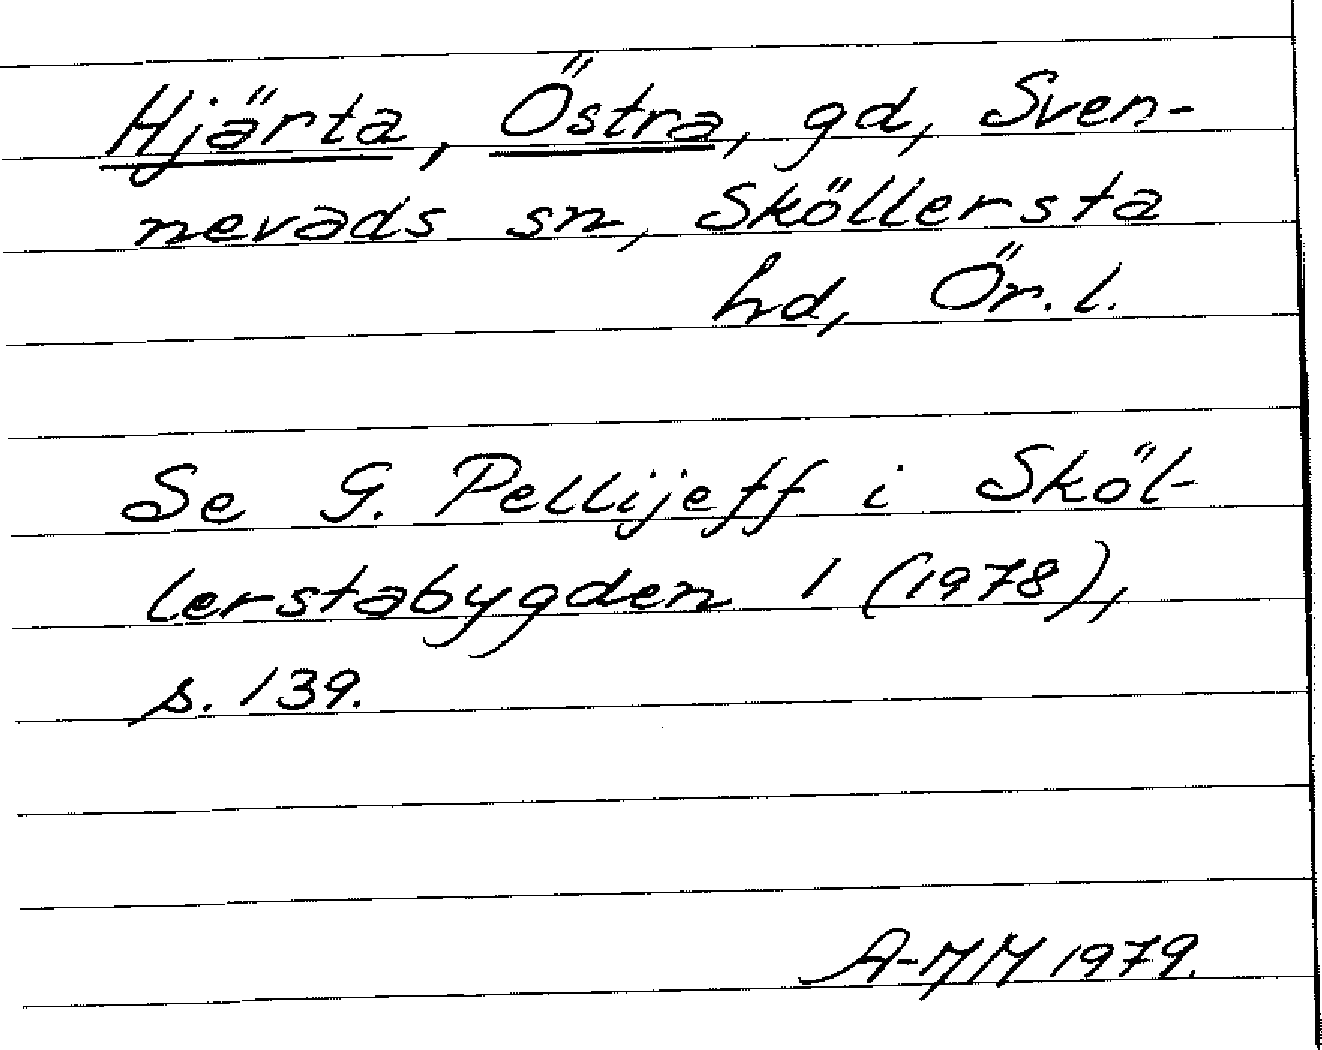 Hjärta, Östra, gd, Sven-
nevads sn, Sköllersta
hd, Ör. l.
Se G. Pellijeff i Sköl-
lerstabygden 1 (1978),
s. 139.
A-MM 1979.